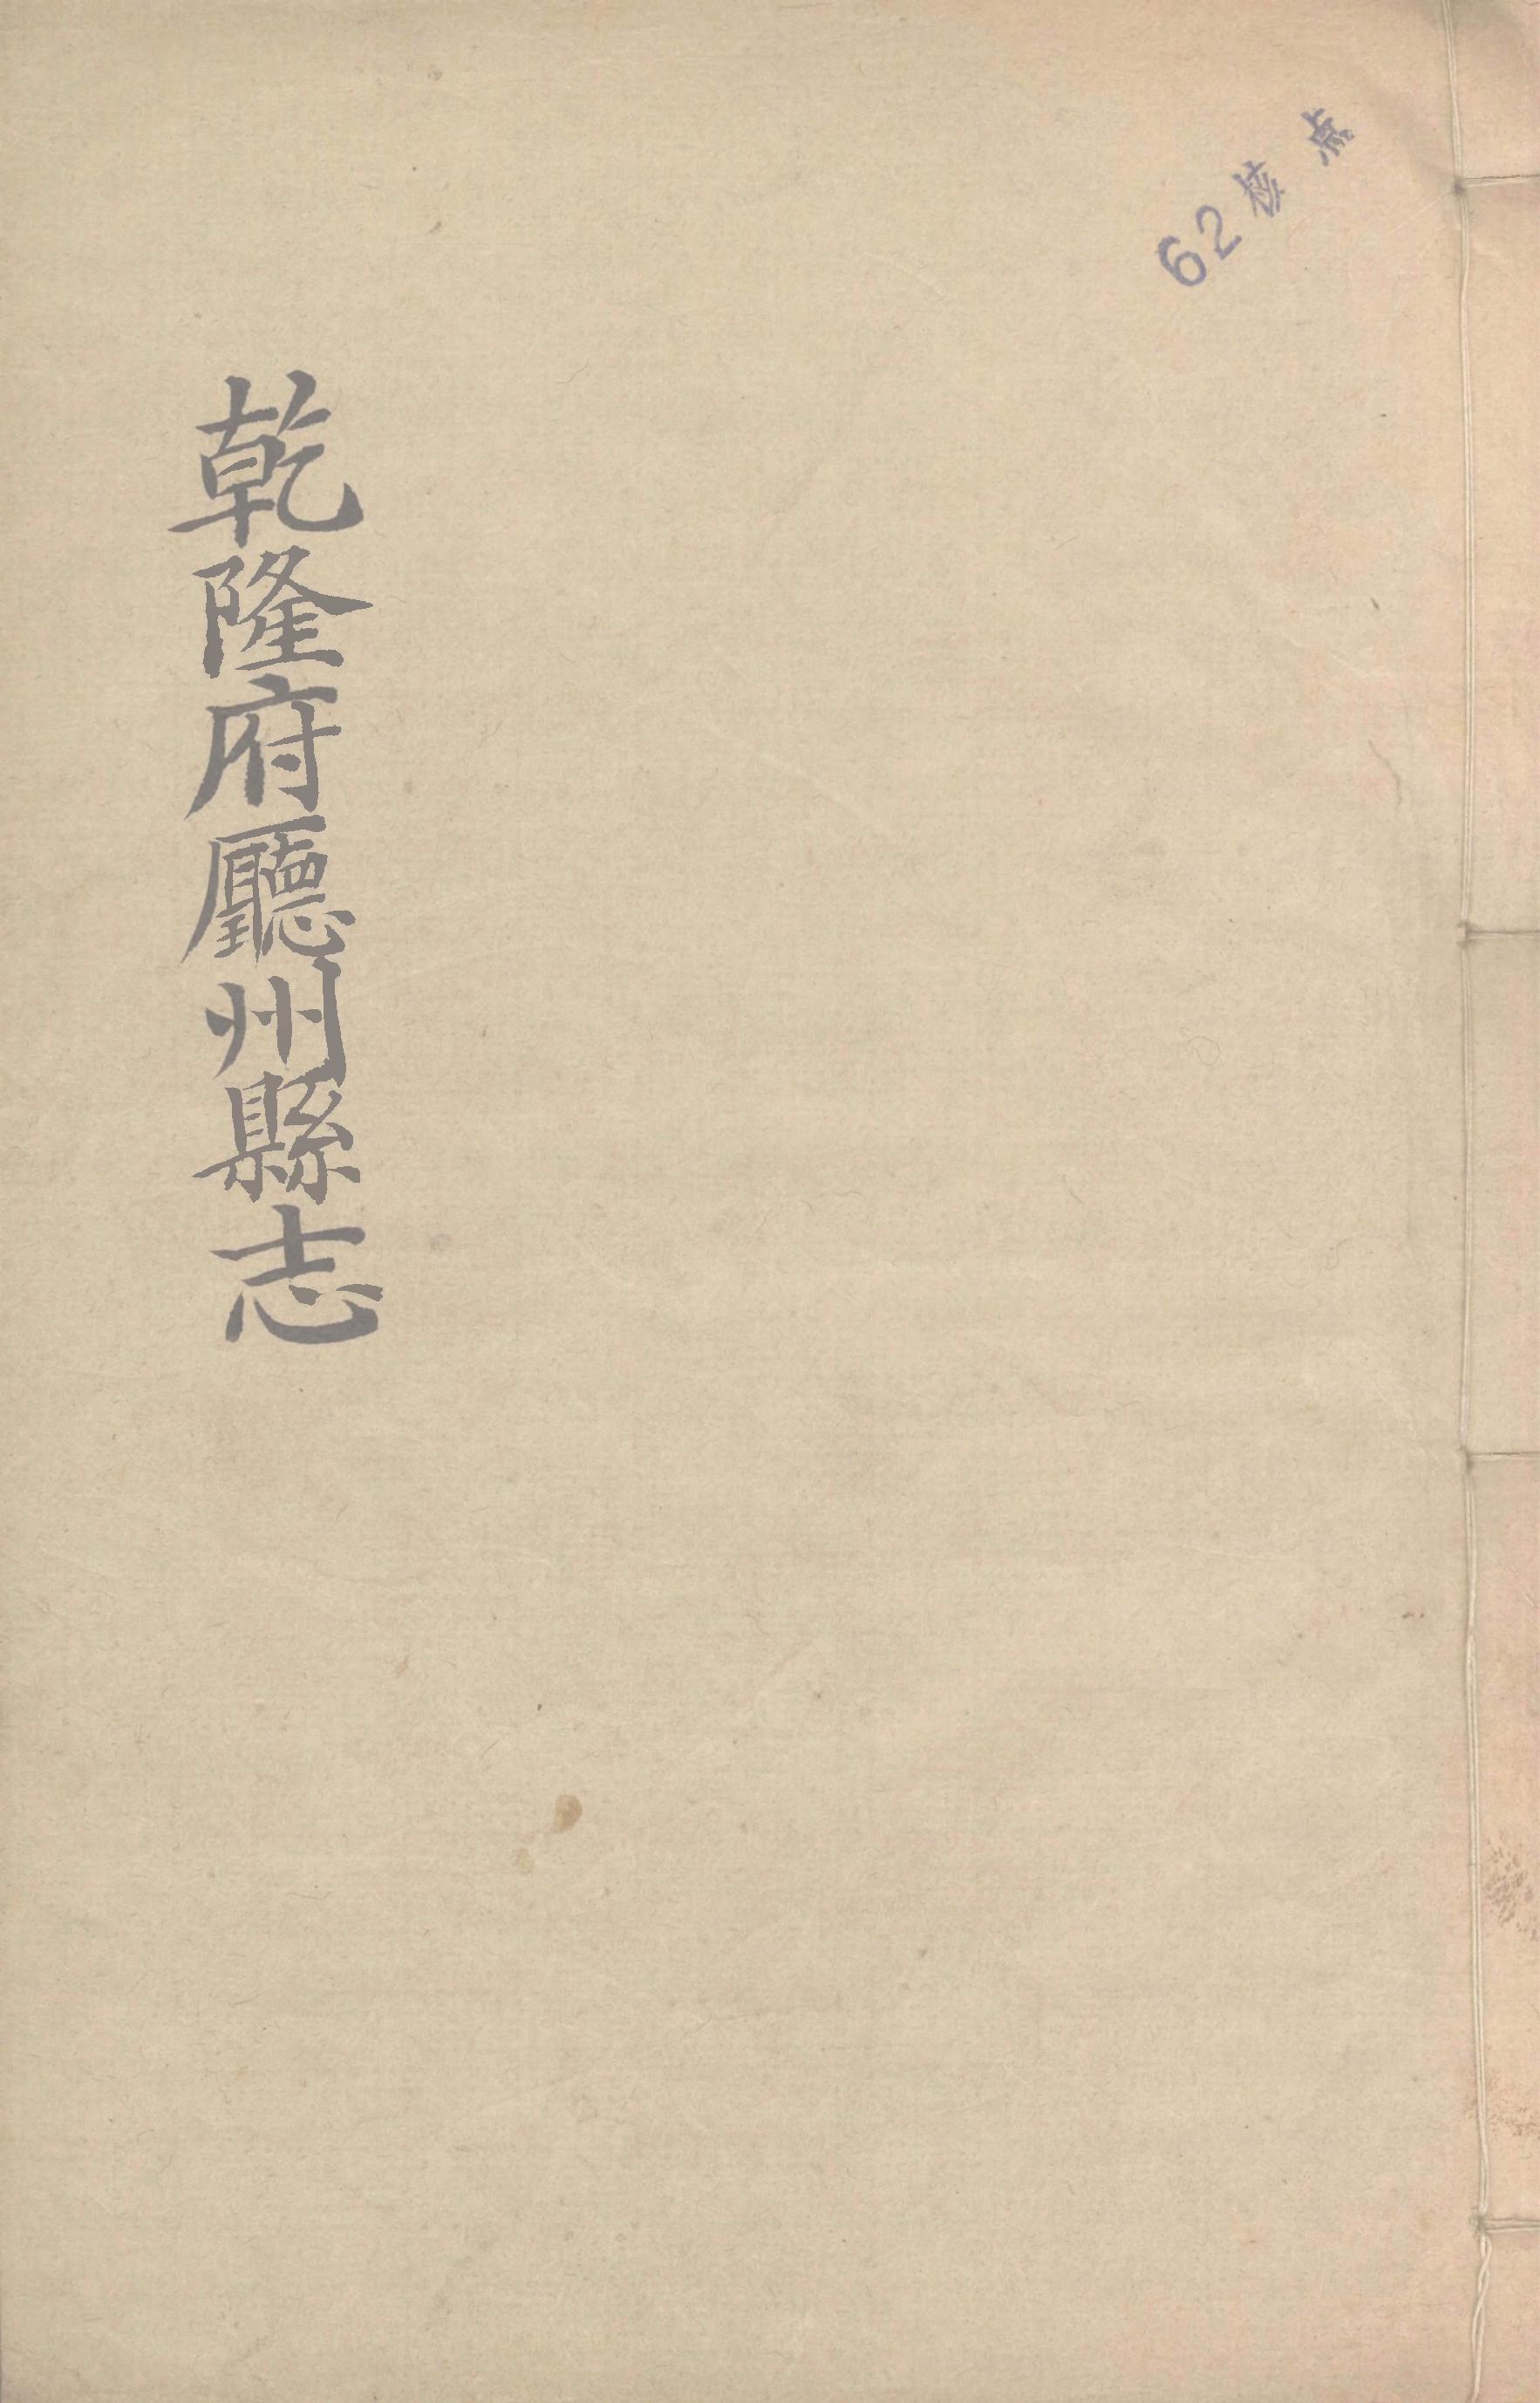 62核点
乾隆府廳州縣志